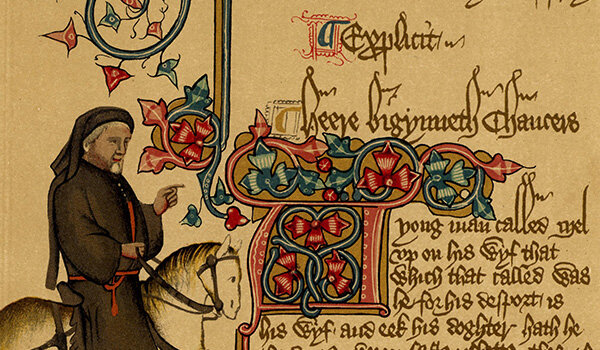 Explicit
Heere bigynneth Chaucers
A yong man called Mel
vp on his wyf that
which that called was
he for his desport is
his wyf and eek his doghter hath he